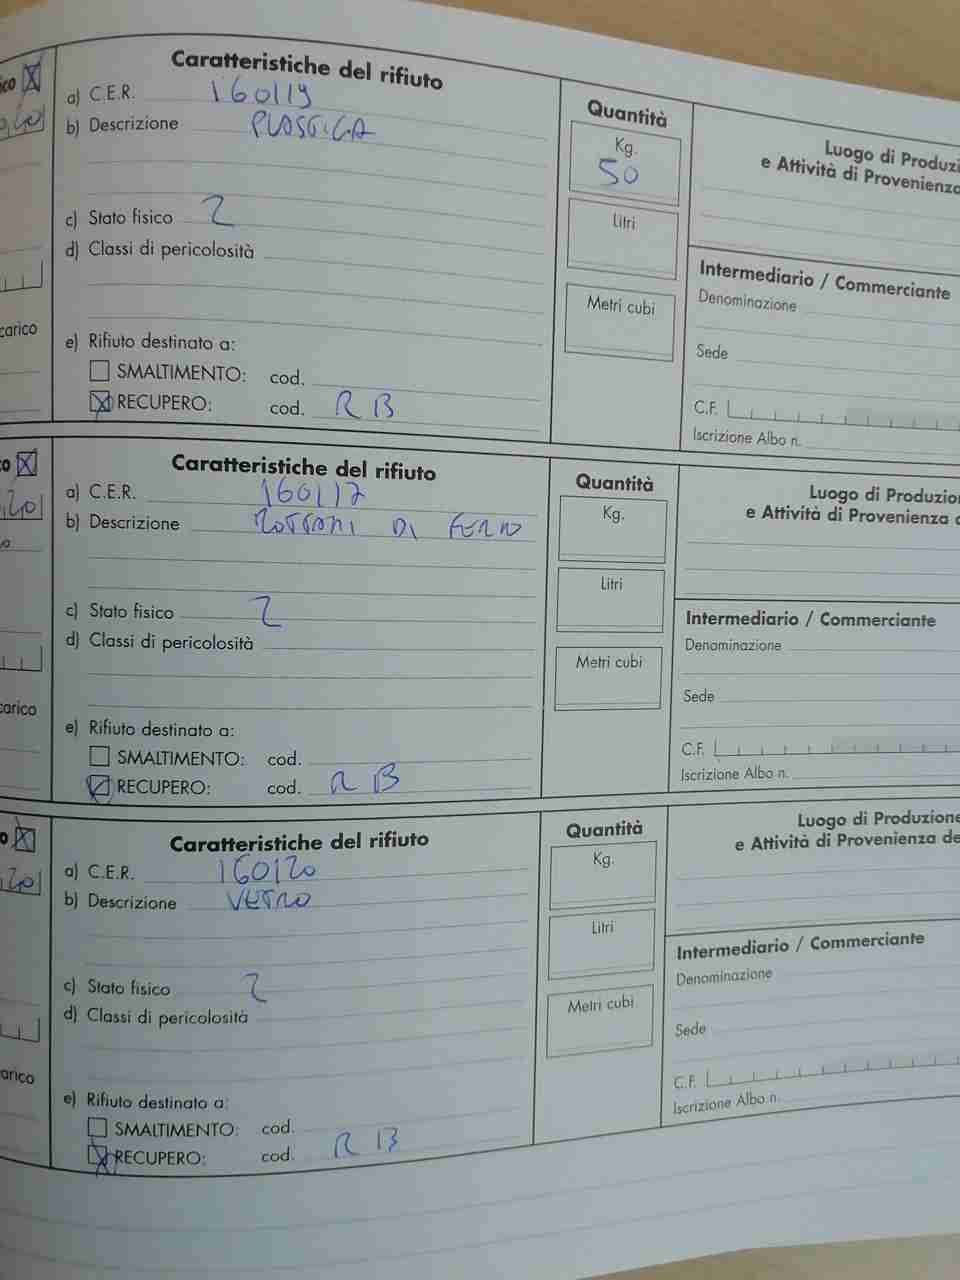 ico X
Caratteristiche del rifiuto
a) C.E.R. 160119
b) Descrizione PLASTICA
c) Stato fisico 2
d) Classi di pericolosità
carico
e) Rifiuto destinato a:
SMALTIMENTO: cod.
X RECUPERO: cod. R 13
Quantità
Kg.
50
Litri
Metri cubi
Luogo di Produzi
e Attività di Provenienza
Intermediario / Commerciante
Denominazione
Sede
C.F.
Iscrizione Albo n.
co X
Caratteristiche del rifiuto
a) C.E.R. 160117
b) Descrizione ROTTAMI DI FERRO
c) Stato fisico 2
d) Classi di pericolosità
carico
e) Rifiuto destinato a:
SMALTIMENTO: cod.
RECUPERO: cod. R 13
Quantità
Kg.
Litri
Metri cubi
Luogo di Produzion
e Attività di Provenienza d
Intermediario / Commerciante
Denominazione
Sede
C.F.
Iscrizione Albo n.
o X
Caratteristiche del rifiuto
a) C.E.R. 160120
b) Descrizione VETRO
c) Stato fisico 2
d) Classi di pericolosità
arico
e) Rifiuto destinato a:
SMALTIMENTO: cod.
X RECUPERO: cod. R 13
Quantità
Kg.
Litri
Metri cubi
Luogo di Produzione
e Attività di Provenienza de
Intermediario / Commerciante
Denominazione
Sede
C.F.
Iscrizione Albo n.